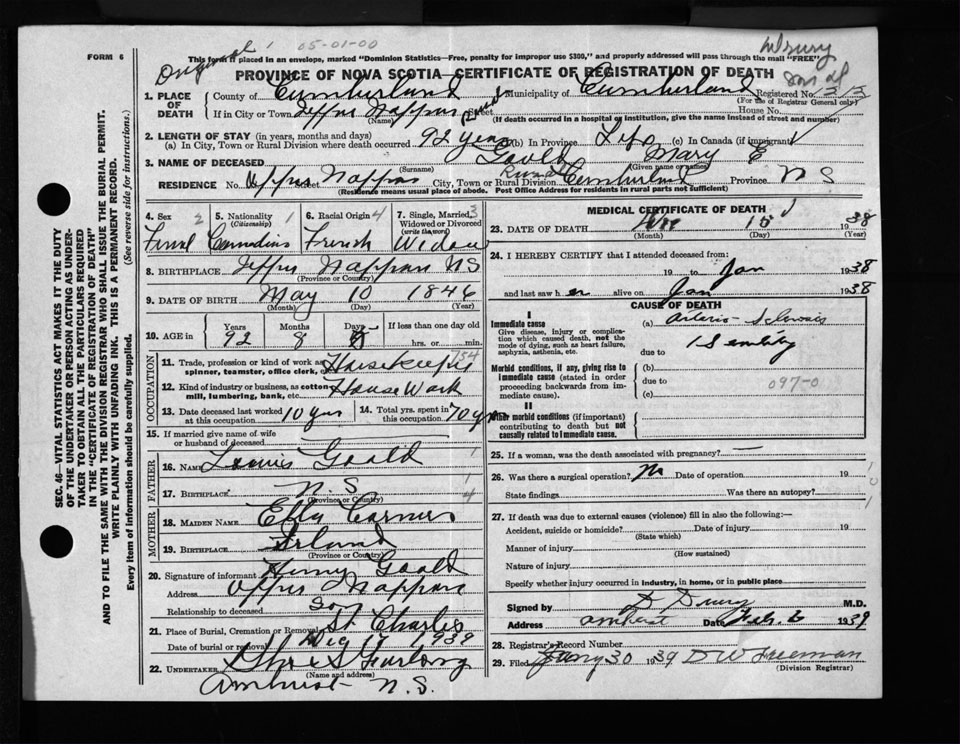 Original 1 05-01-00
FORM 6
This form if placed in an envelope, marked "Dominion Statistics—Free, penalty for improper use $300," and properly addressed will pass through the mail "FREE"
PROVINCE OF NOVA SCOTIA—CERTIFICATE OF REGISTRATION OF DEATH
1. PLACE OF DEATH County of Cumberland Municipality of Cumberland Registered No.
(For use of Registrar General only)
If in City or Town Upper Nappan Street House No.
(Name) (If death occurred in a hospital or institution, give the name instead of street and number)
2. LENGTH OF STAY (in years, months and days)
(a) In City, Town or Rural Division where death occurred 92 years (b) In Province Life (c) In Canada (if immigrant)
3. NAME OF DECEASED Goold Mary E
(Surname) (Given name or names)
RESIDENCE No. Upper Nappan Street City, Town or Rural Division Cumberland Province N S
(Residence means usual place of abode. Post Office Address for residents in rural parts not sufficient)
SEC. 46—VITAL STATISTICS ACT MAKES IT THE DUTY
OF THE UNDERTAKER OR PERSON ACTING AS UNDER-
TAKER TO OBTAIN ALL THE PARTICULARS REQUIRED
IN THE "CERTIFICATE OF REGISTRATION OF DEATH"
AND TO FILE THE SAME WITH THE DIVISION REGISTRAR WHO SHALL ISSUE THE BURIAL PERMIT.
WRITE PLAINLY WITH UNFADING INK. THIS IS A PERMANENT RECORD.
Every item of information should be carefully supplied. (See reverse side for instructions.)
4. Sex 2 5. Nationality 1 6. Racial Origin 4 7. Single, Married, 3
(Citizenship) Widowed or Divorced
(write the word)
Canadian French Widow
8. BIRTHPLACE Upper Nappan NS
(Province or Country)
9. DATE OF BIRTH May 10 1846
(Month) (Day) (Year)
10. AGE in Years Months Days If less than one day old
92 8 hrs. or min.
OCCUPATION
11. Trade, profession or kind of work as Housekeeper
spinner, teamster, office clerk, etc.
12. Kind of industry or business, as cotton House Work
mill, lumbering, bank, etc.
13. Date deceased last worked 10 yrs 14. Total yrs. spent in 70 yrs
at this occupation in this occupation
15. If married give name of wife
or husband of deceased
FATHER
16. NAME Louis Goold
17. BIRTHPLACE N. S
(Province or Country)
MOTHER
18. MAIDEN NAME
19. BIRTHPLACE Irland
(Province or Country)
20. Signature of informant Henry Goold
Address Upper Nappan
Relationship to deceased Son
21. Place of Burial, Cremation or Removal St Charles
Date of burial or removal
22. UNDERTAKER
(Name and address)
Amherst N.S.
MEDICAL CERTIFICATE OF DEATH
23. DATE OF DEATH 15 38
(Month) (Day) (Year)
24. I HEREBY CERTIFY that I attended deceased from:
19 to Jan 1938
and last saw her alive on Jan 1938
CAUSE OF DEATH
I
Immediate cause (a) Arterio-Sclerosis
Give disease, injury or complica-
tion which caused death, not the
mode of dying, such as heart failure,
asphyxia, asthenia, etc.
due to Senility
Morbid conditions, if any, giving rise to
immediate cause (stated in order
proceeding backwards from im-
mediate cause).
(b)
due to 097-0
(c)
II
Other morbid conditions (if important)
contributing to death but not
causally related to immediate cause.
25. If a woman, was the death associated with pregnancy?
26. Was there a surgical operation? No Date of operation 19
State findings Was there an autopsy?
27. If death was due to external causes (violence) fill in also the following:
Accident, suicide or homicide? Date of injury 19
(State which)
Manner of injury
(How sustained)
Nature of injury
Specify whether injury occurred in industry, in home, or in public place
Signed by D Drury M.D.
Address Amherst Date Feb. 6 1939
28. Registrar's Record Number
29. Filed Jany 30 1939 D W Freeman
(Division Registrar)